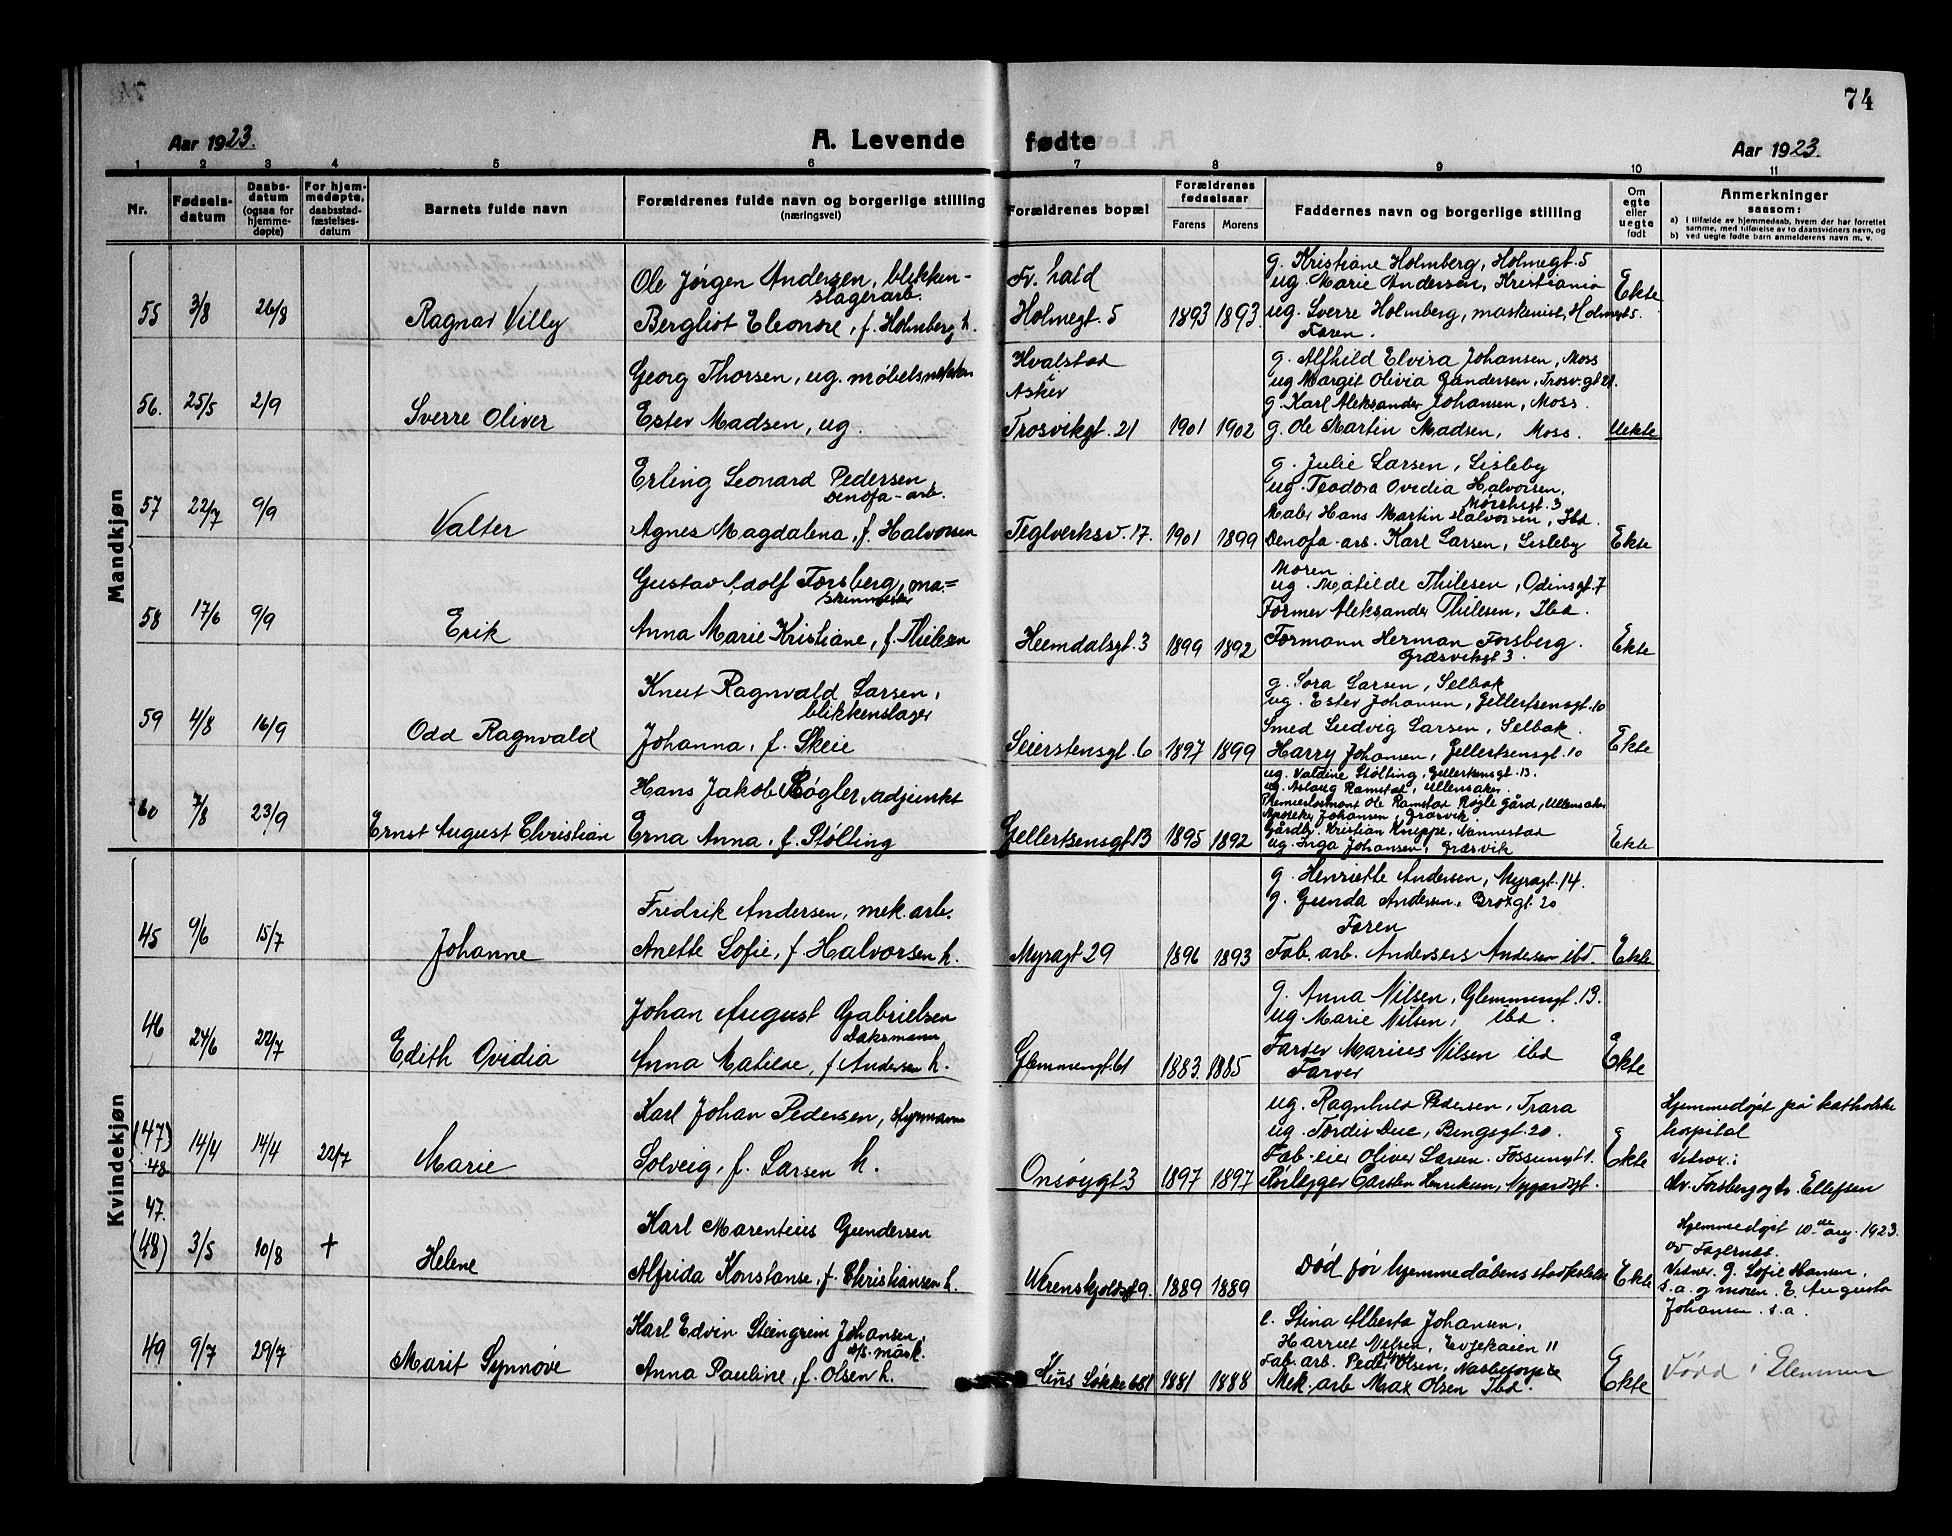 74
Aar 1923.
A. Levende fødte
Aar 1923.
1 2 3 4 5 6 7 8 9 10 11
Nr.
Fødsels-
datum
Daabs-
datum
(ogsaa for
hjemme-
døpte)
For hjem-
medøpte,
daabsstad-
fæstelses-
datum
Barnets fulde navn
Forældrenes fulde navn og borgerlige stilling
(næringsvei)
Forældrenes bopæl
Forældrenes
fødselsaar
Farens Morens
Faddernes navn og borgerlige stilling
Om
egte
eller
uegte
født
Anmerkninger
saasom:
a) i tilfælde av hjemmedaab, hvem der har forrettet
samme, med tilføielse av to daabsvidners navn, og
b) ved uegte fødte barn anmelderens navn m. v.
Mandkjøn
55 3/8 26/8 Ragnar Villy
Ole Jørgen Andersen, blikken-
slagerarb.
Bergliot Eleonore, f. Holmberg h.
Fr. hald
Holmegt. 5 1893 1893.
g. Kristiane Holmberg, Holmegt. 5
ug. Marie Andersen, Kristiania
ug. Sverre Holmberg, maskinist, Holmegt 5.
Faren.
Ekte
56. 25/5 2/9 Sverre Oliver
Georg Thorsen, ug. møbelsnekker
Ester Madsen, ug.
Hvalstad
i
Asker
Trosvikgt. 21 1901 1902
g. Alfhild Elvira Johansen, Moss
ug Margit Olivia Gundersen, Trosv.gt 21.
g. Karl Aleksander Johansen, Moss.
g. Ole Martin Madsen, Moss.
Uekte
57 22/7 9/9 Valter
Erling Leonard Pedersen,
Denofa-arb.
Agnes Magdalena, f. Halvorsen
Teglverksv. 17. 1901 1899
g. Julie Larsen, Lisleby
ug. Teodora Ovidia Halvorsen,
Mørchsgt. 3
Maler Hans Martin Halvorsen, Ibd.
Denofa-arb. Karl Larsen, Lisleby
Ekte
58 17/6 9/9 Erik
Gustav Adolf Forsberg, ma=
skinmester
Anna Marie Kristiane, f. Thilesen
Heimdalsgt. 3 1899 1892
Moren
ug. Matilde Thilesen, Odinsgt. 7
Former Aleksander Thilesen, Ibd.
Formann Herman Forsberg.
Græsvikgt 3.
Ekte
59 4/8 16/9 Odd Ragnvald
Knut Ragnvald Larsen,
blikkenslager
Johanna, f. Skeie
Seierstensgt. 6 1897 1899
g. Sora Larsen, Selbak
ug. Ester Johansen, Gellertsensgt. 10
Smed Ludvig Larsen, Selbak.
Harry Johansen, Gellertsensgt. 10
Ekte
60 7/8 23/9 Ernst August Christian
Hans Jakob Røgler, adjunkt
Erna Anna, f. Stølting
Gellertsensgt 13 1895 1892
ug. Valdine Stølting, Gellertsensgt. 13.
ug. Aslaug Ramstad, Ullensaker.
Premierløitnant Ole Ramstad Røgle gård, Ullensaker
Apoteker Johansen, Græsvik.
Gårdbr. Kristian Knippe, Nannestad
ug. Inga Johansen, Græsvik
Ekte
Kvindekjøn
45 9/6 15/7 Johanne
Fredrik Andersen, mek. arb.
Anette Sofie, f Halvorsen h.
Myragt 29 1896 1893
g. Henriette Andersen, Myragt. 14.
g. Gunda Andersen, Brogt. 20
Faren
Fab. arb. Anders Andersen ibd.
Ekte
46 24/6 22/7 Edith Ovidia
Johan August Gabrielsen
Laksmann
Anna Matilde, f Andersen h.
Glemmengt. 61 1883. 1885
g. Anna Nilsen, Glemmengt. 13.
ug. Marie Nilsen, ibd.
Farver Marius Nilsen ibd
Farver
Ekte
(47)
48 14/4 14/4 22/7 Marie
Karl Johan Pedersen, styrmann
Solveig, f. Larsen h.
Onsøygt 3 1897 1897
ug. Ragnhild Pedersen, Trara
ug. Tordis Due, Bengsgt. 20.
Fab-eier Oliver Larsen. Fossumgt 1.
Rørlegger Carsten Henriksen, Nygaardsgt.
Ekte
Hjemmedøpt på katholske
hospital
Vidner:
dr. Forsberg og dr. Ellefsen
47.
(48) 3/5 10/8 + Helene
Karl Marentius Gundersen
Alfrida Konstanse, f. Christiansen h.
Werenskjoldsgt 9. 1889 1889
Død før hjemmedåbens stadfestelse
Ekte
Hjemmedøpt 10de aug. 1923.
av Fagernæs.
Vidner. g. Sofie Hansen,
s.a. og moren. E. Augusta
Johansen. s.a.
49 9/7 29/7 Marit Synnøve
Karl Edvin Steingrim Johansen,
Anna Pauline, f. Olsen h.
Hus Løkke 681 1881 1888
e. Stina Alberta Johansen,
Harriet Nilsen, Evjekaien 11
Fab. arb. Peder Olsen,
Mek. arb Max Olsen Ibd.
Ekte
Född i Glemmen